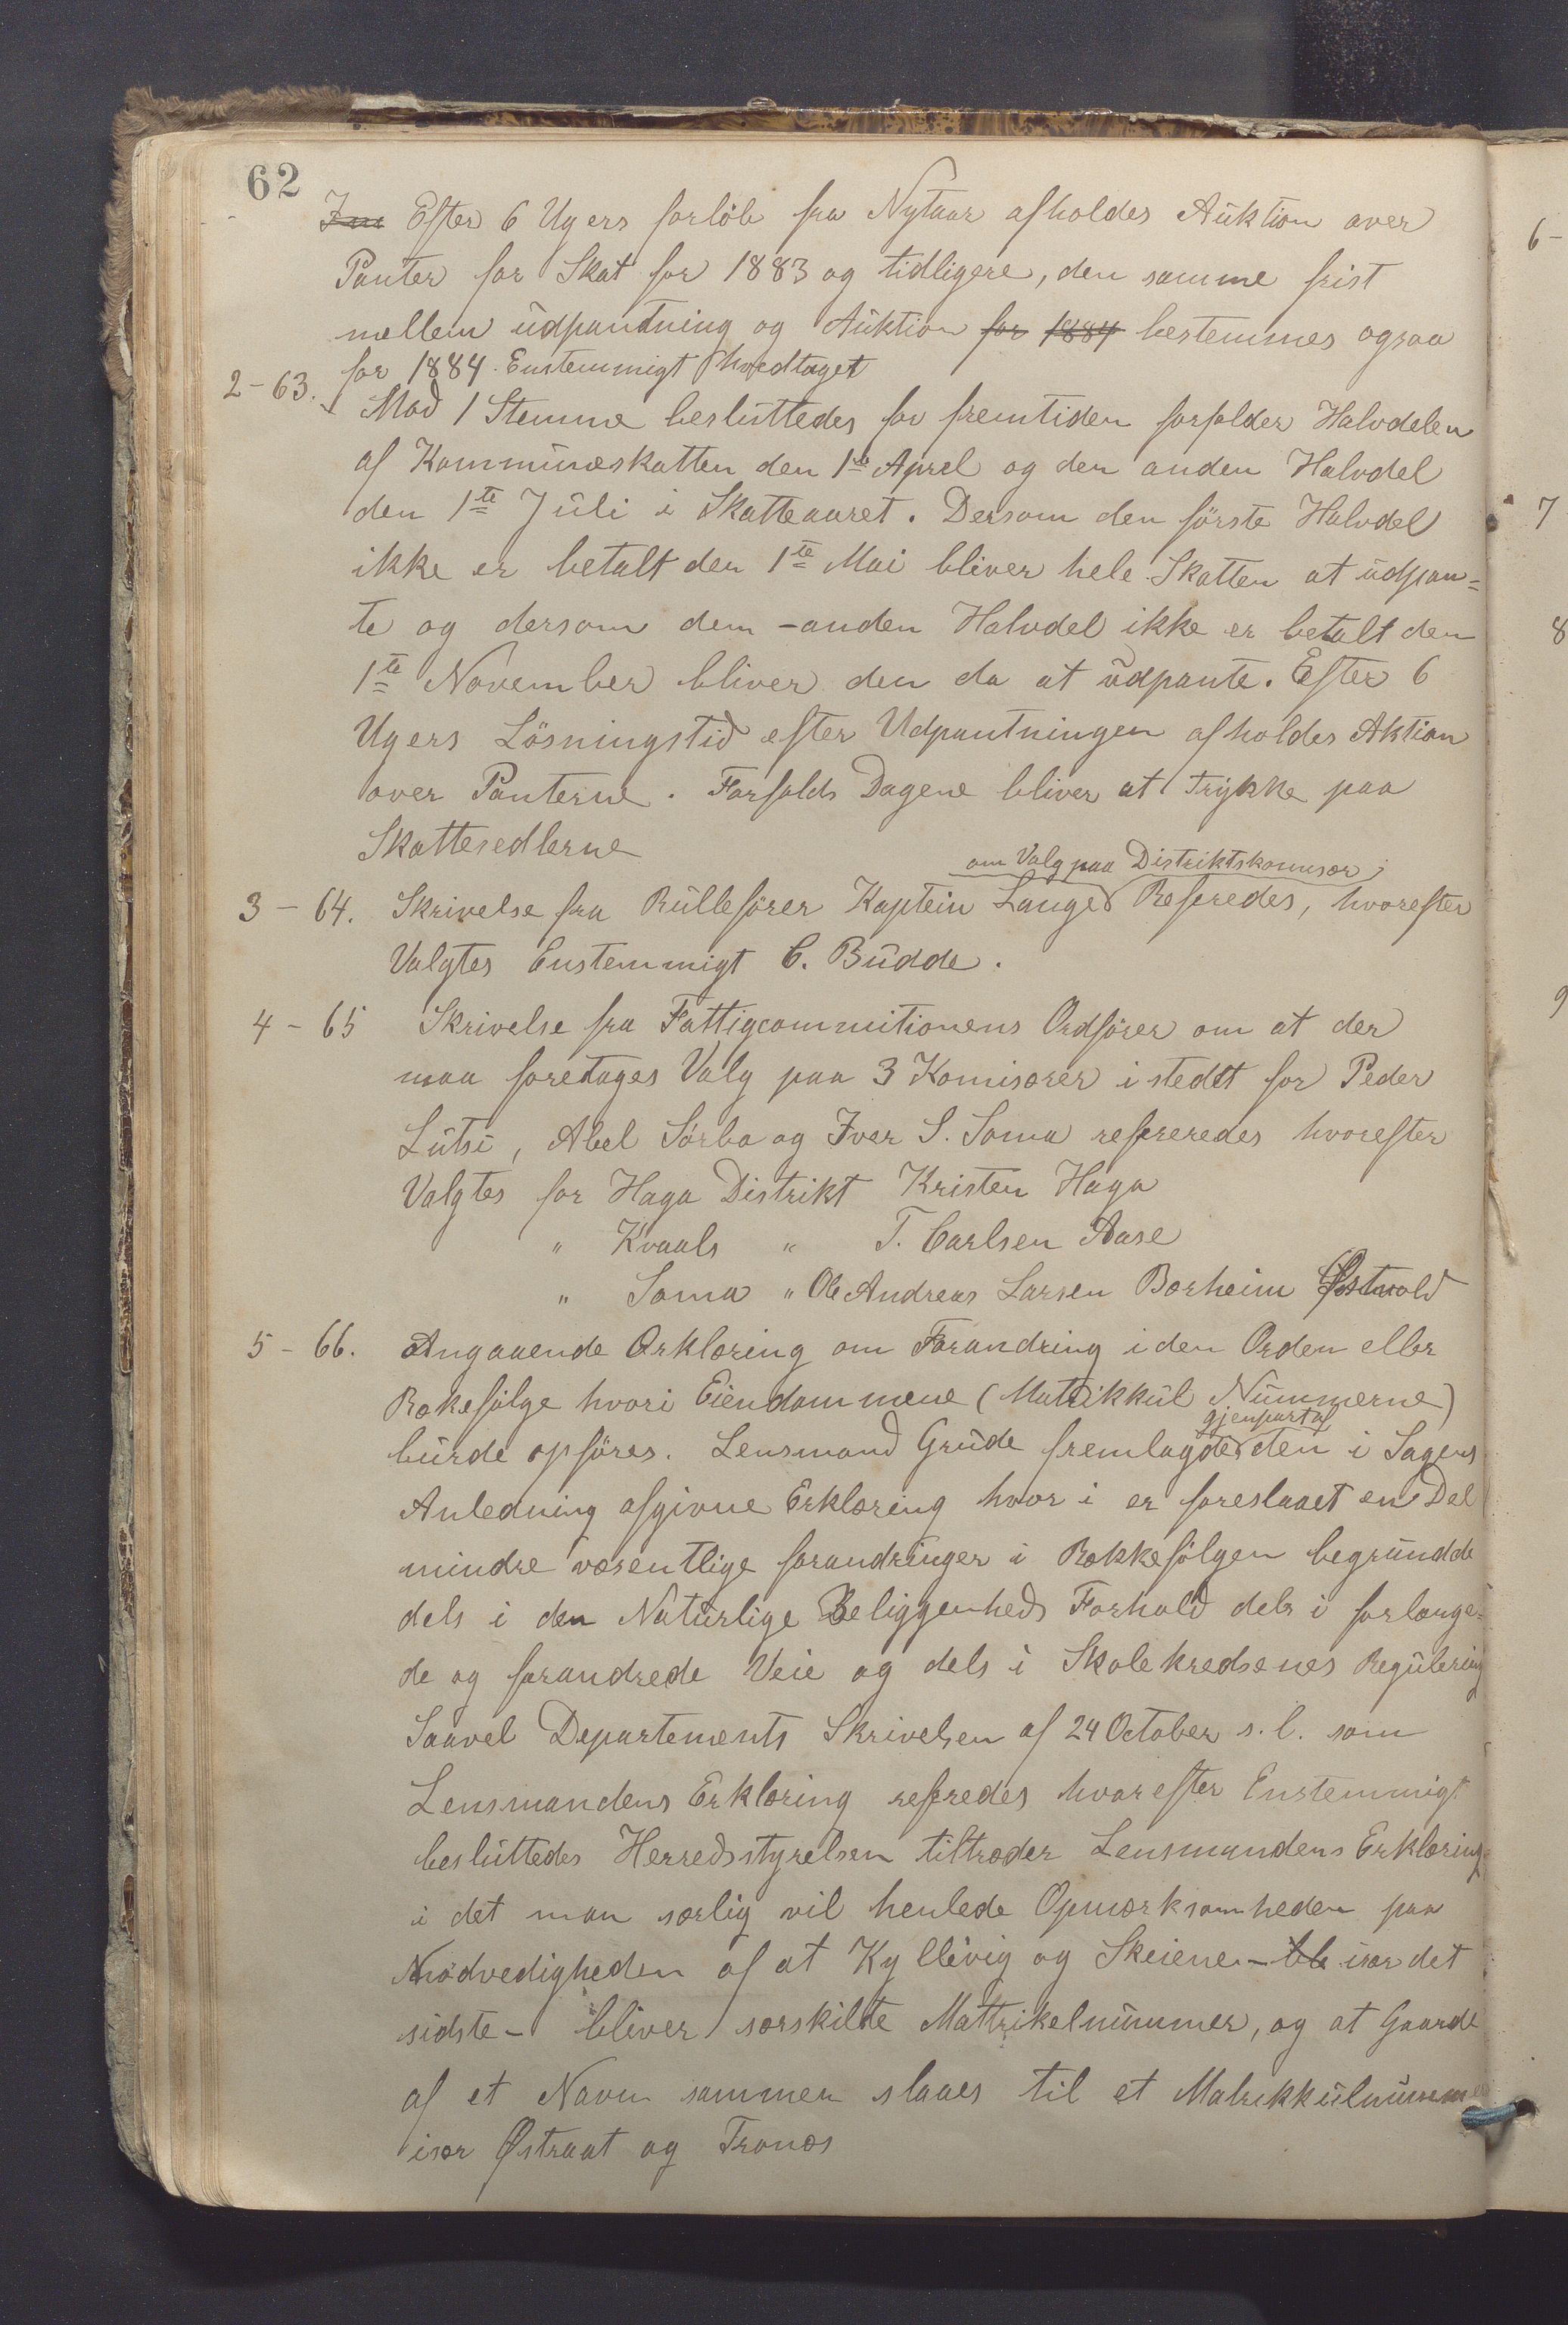 62
Inn Efter 6 Ugers forløb fra Nytaar afholdes Auktion over
Panter for Skat for 1883 og tidligere, den samme frist
mellem udpantning og Auktion for 1884 bestemmes ogsaa
for 1884. Enstemmigt hvedtaget
2-63. Mod 1 Stemme besluttedes for fremtiden forfalder Halvdelen
af Kommuneskatten den 1te Aprel og den anden Halvdel
den 1te Juli i Skatteaaret. Dersom den første Halvdel
ikke er betalt den 1te Mai bliver hele Skatten at udpan=
te og dersom dem -anden Halvdel ikke er betalt den
1te November bliver den da at udpante. Efter 6
Ugers Løsningstid efter Udpantningen afholdes Aktion
over Panterne. Forfalds Dagene bliver at trykke paa
Skattesedlerne
om Valg paa Distriktskomisær
3-64. Skrivelse fra Rulleförer Kaptein Lange Referedes, hvorefter
Valgtes Enstemmigt C. Budde.
4-65 Skrivelse fra Fattigcommitionens Ordfører om at der
maa foretages Valg paa 3 Komisærer i stedet for Peder
Lutsi, Abel Sørbø og Iver S. Soma refereredes hvorefter
Valgtes for Haga Distrikt Kristen Haga
" Kvaals " T. Carlsen Aase
" Soma " Ole Andreas Larsen Borheim Østvold
5-66. Angaaende Erklæring om Forandring i den Orden eller
Rækefølge hvori Eiendommene (Matrikkul Nummerne)
gjenpart af
burde opføres. Lensmand Grude fremlagde den i Sagens
Anledning afgivne Erklæring hvor i er foreslaaet en Del
mindre væsentlige forandringer i Rækkefølgen begrundde
dels i den Naturlige Beliggenheds Forhold dels i forlænge=
de og forandrede Veie og dels i Skolekredsenes Regulering
Saavel Departements Skrivelsen af 24 October s.l. som
Lensmandens Erklæring referedes hvorefter Enstemmigt
besluttedes Herredsstyrelsen tiltræder Lensmandens Erklæring
i det man særlig vil henlede Opmærksomheden paa
Nødvedigheden af at Kyllivig og Skeiene - ble især det
sidste - bliver særskilte Mattrikelnummer, og at Gaarde
af et Navn sammen slaaes til et Matrikkülnummer
især Østraat og Tronæs
6-
7
8
9